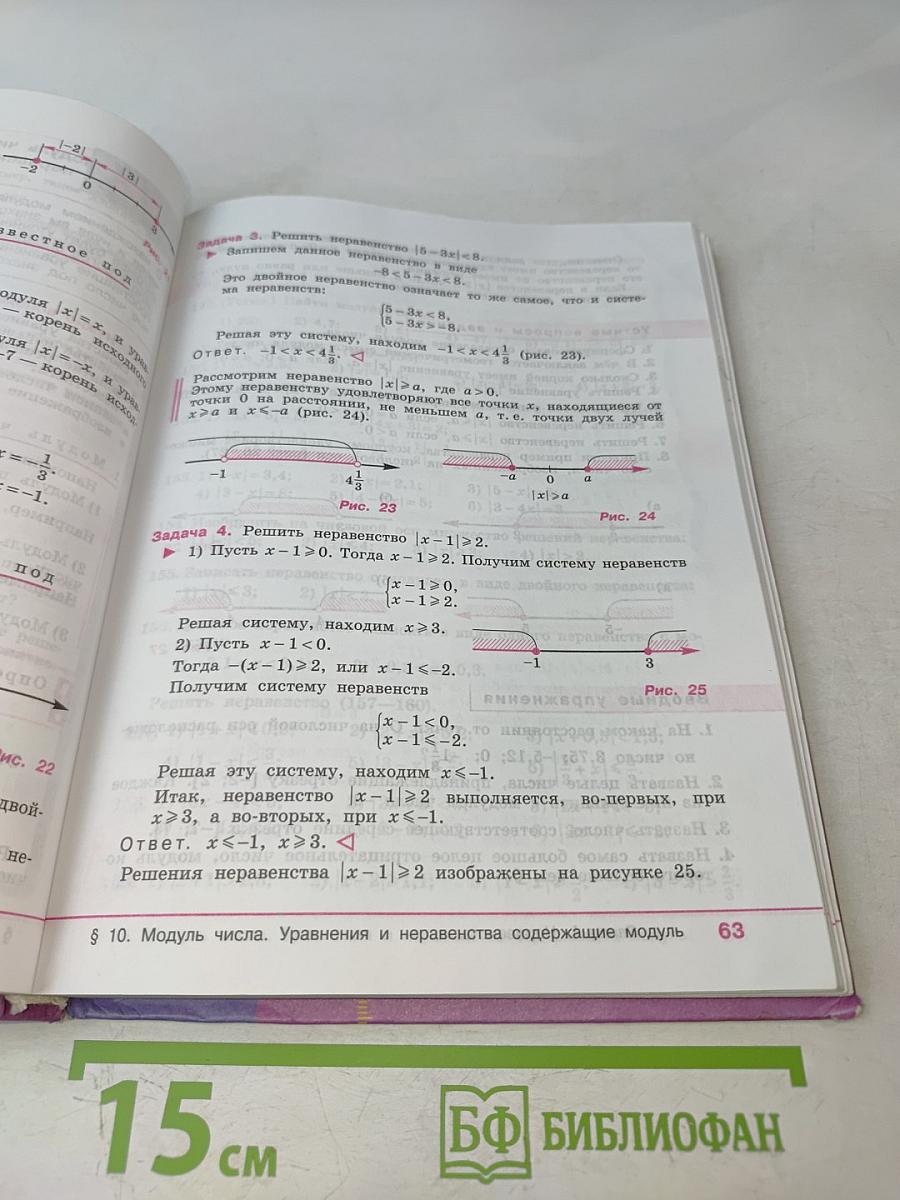 |−2|
|3|
−2
0
3
звестное под
одуля |x|=x, и урав-
— корень исходного
уля |x|=−x, и урав-
−7 — корень исход-
x=−1/3.
x=−1.
под
Рис. 22
двой-
не-
Задача 3. Решить неравенство |5−3x|<8.
▶ Запишем данное неравенство в виде
−8<5−3x<8.
Это двойное неравенство означает то же самое, что и систе-
ма неравенств:
{5−3x<8,
{5−3x>−8.
Решая эту систему, находим −1<x<4 1/3 (рис. 23).
Ответ. −1<x<4 1/3. ◁
Рассмотрим неравенство |x|⩾a, где a>0.
Этому неравенству удовлетворяют все точки x, находящиеся от
точки 0 на расстоянии, не меньшем a, т. е. точки двух лучей
x⩾a и x⩽−a (рис. 24).
−1
4 1/3
Рис. 23
−a 0 a
|x|⩾a
Рис. 24
Задача 4. Решить неравенство |x−1|⩾2.
▶ 1) Пусть x−1⩾0. Тогда x−1⩾2. Получим систему неравенств
{x−1⩾0,
{x−1⩾2.
Решая систему, находим x⩾3.
2) Пусть x−1<0.
Тогда −(x−1)⩾2, или x−1⩽−2.
Получим систему неравенств
−1 3
Рис. 25
{x−1<0,
{x−1⩽−2.
Решая эту систему, находим x⩽−1.
Итак, неравенство |x−1|⩾2 выполняется, во-первых, при
x⩾3, а во-вторых, при x⩽−1.
Ответ. x⩽−1, x⩾3. ◁
Решения неравенства |x−1|⩾2 изображены на рисунке 25.
§ 10. Модуль числа. Уравнения и неравенства содержащие модуль 63
15 см
БФ БИБЛИОФАН